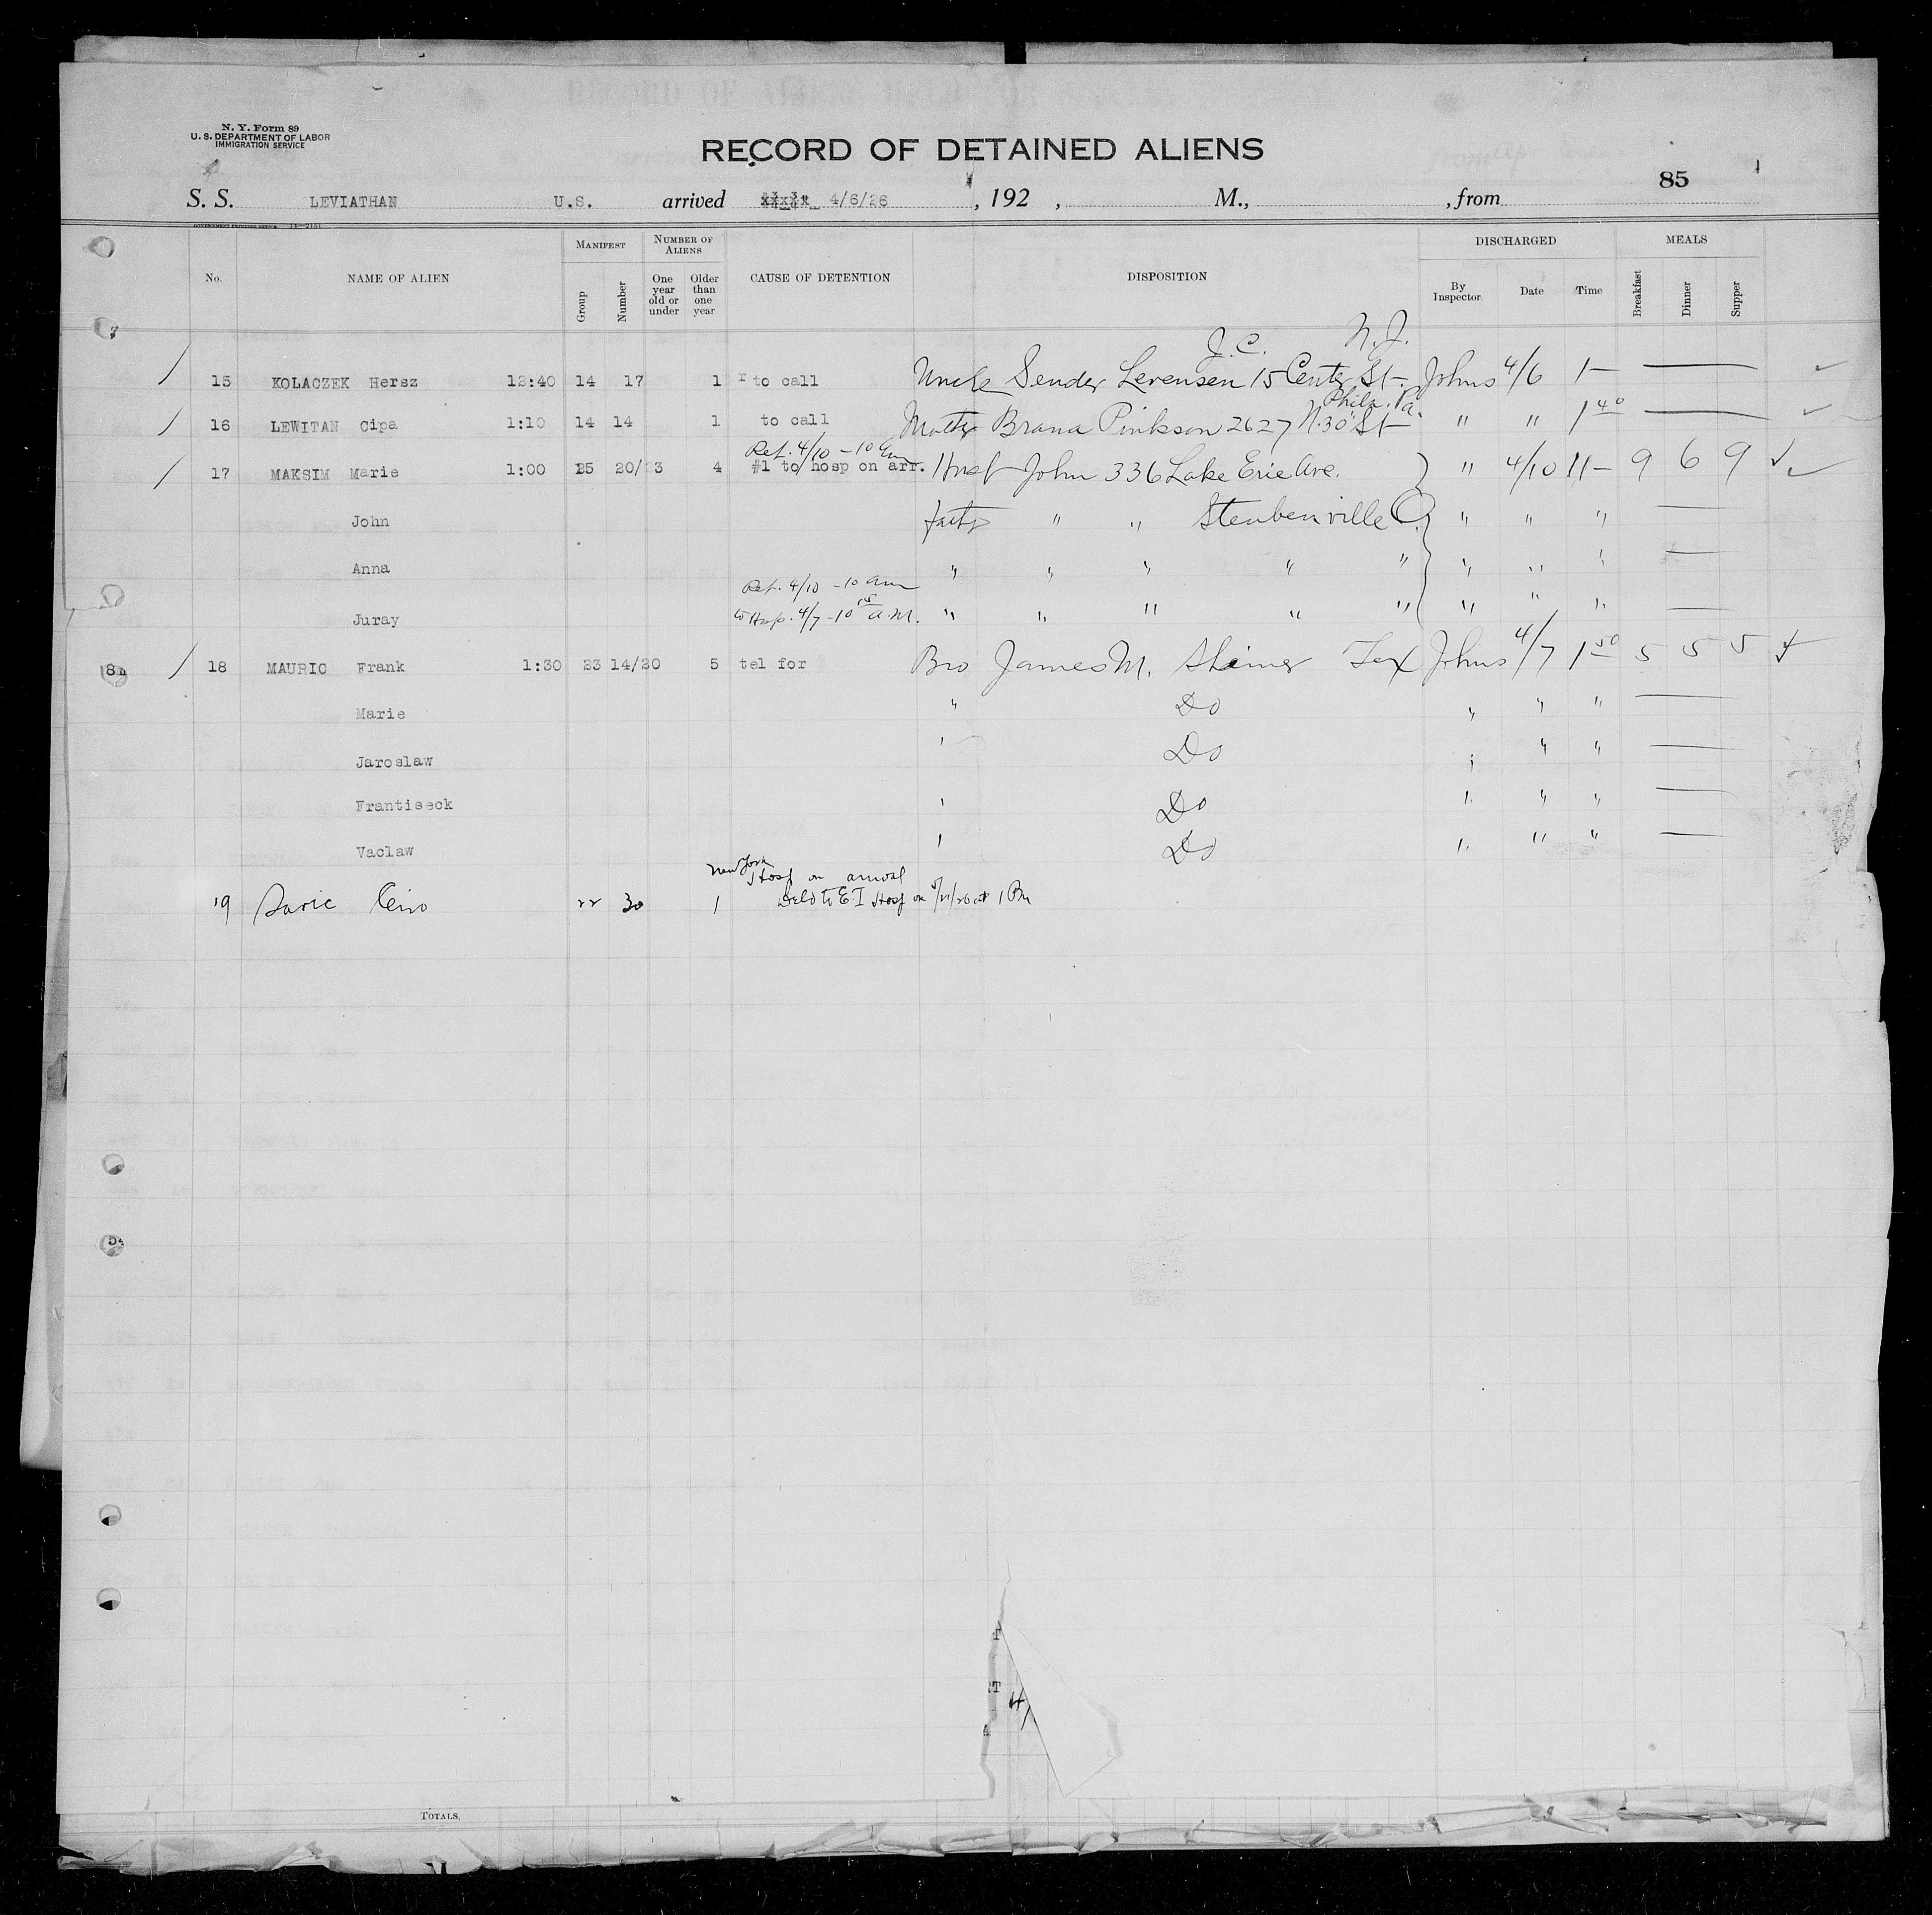 N. Y. Form 89
U. S. DEPARTMENT OF LABOR
IMMIGRATION SERVICE
RECORD OF DETAINED ALIENS
85
S. S. LEVIATHAN U.S. arrived 4/6/26 , 192 , M., , from
GOVERNMENT PRINTING OFFICE
No. NAME OF ALIEN MANIFEST Group Number NUMBER OF ALIENS One year old or under Older than one year CAUSE OF DETENTION DISPOSITION DISCHARGED By Inspector. Date Time MEALS Breakfast Dinner Supper
J. C. N. J.
15 KOLACZEK Hersz 12:40 14 17 1 to call Uncle Sender Levensen 15 Center St. Johns 4/6 1—
Phila. Pa.
16 LEWITAN Cipa 1:10 14 14 1 to call Mother Brana Pinkson 2627 N. 30" St " " 1 40
Ret. 4/10 - 10 am
17 MAKSIM Marie 1:00 25 20/23 4 #1 to hosp on arr. Husb John 336 Lake Erie Ave. " 4/10 11— 9 6 9
John father " " Steubenville O. " " "
Anna " " " " " " " "
Ret. 4/10 - 10 am
Juray to Hosp. 4/7 - 10 15 a.m. " " " " " " " "
18 MAURIC Frank 1:30 23 14/20 5 tel for Bro James M. Shiner Tex Johns 4/7 1 50 5 5 5
Marie " Do " " "
Jaroslaw " Do " " "
Frantiseck " Do " " "
Vaclaw " Do " " "
New York
Hosp on arrival
19 Saric 22 30 1 Deld to E.I Hosp on at 1 Pm
TOTALS,